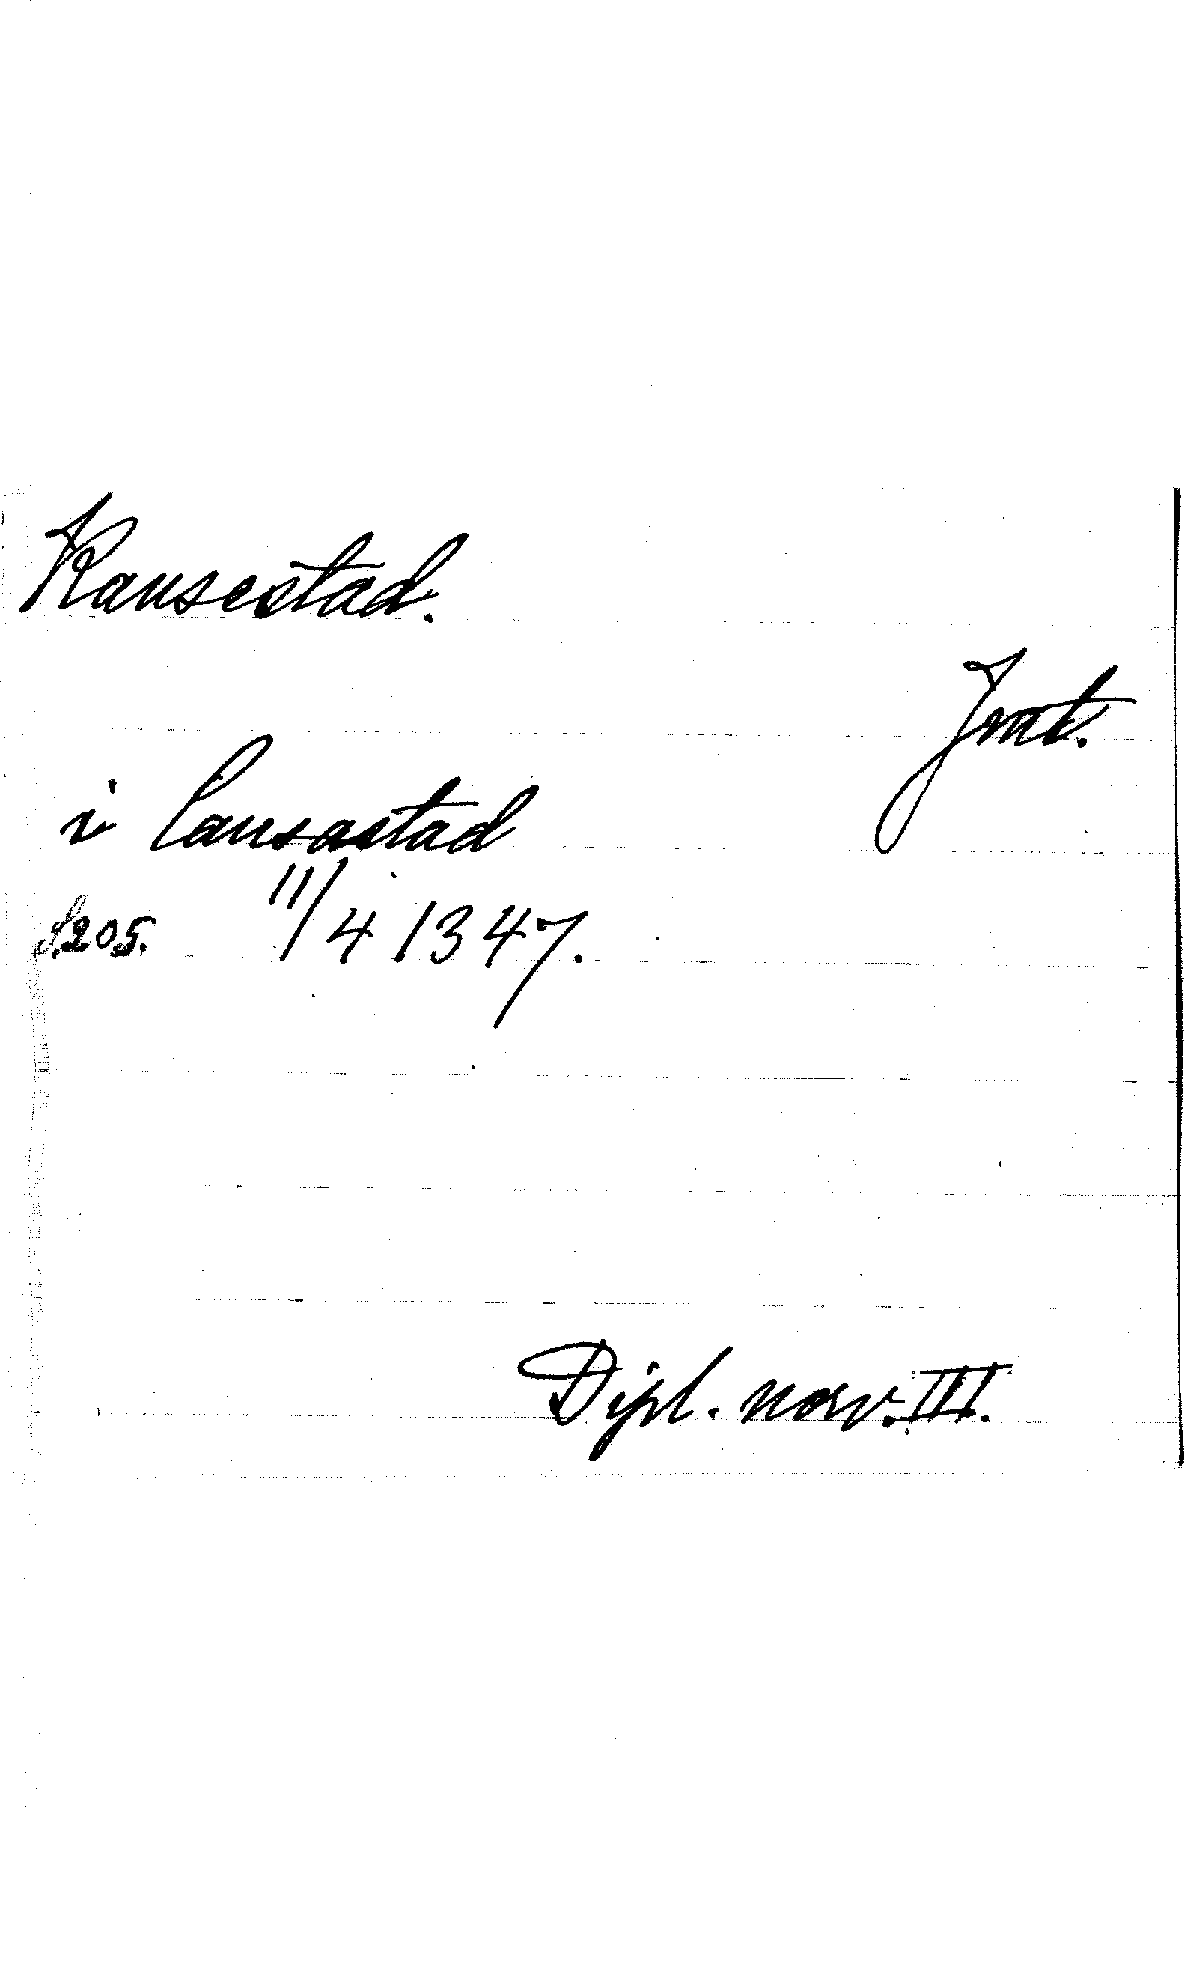 Kausestad.
Jmt.
i Causastad
S.205. 11/4 1347.
Dipl. norv. III.